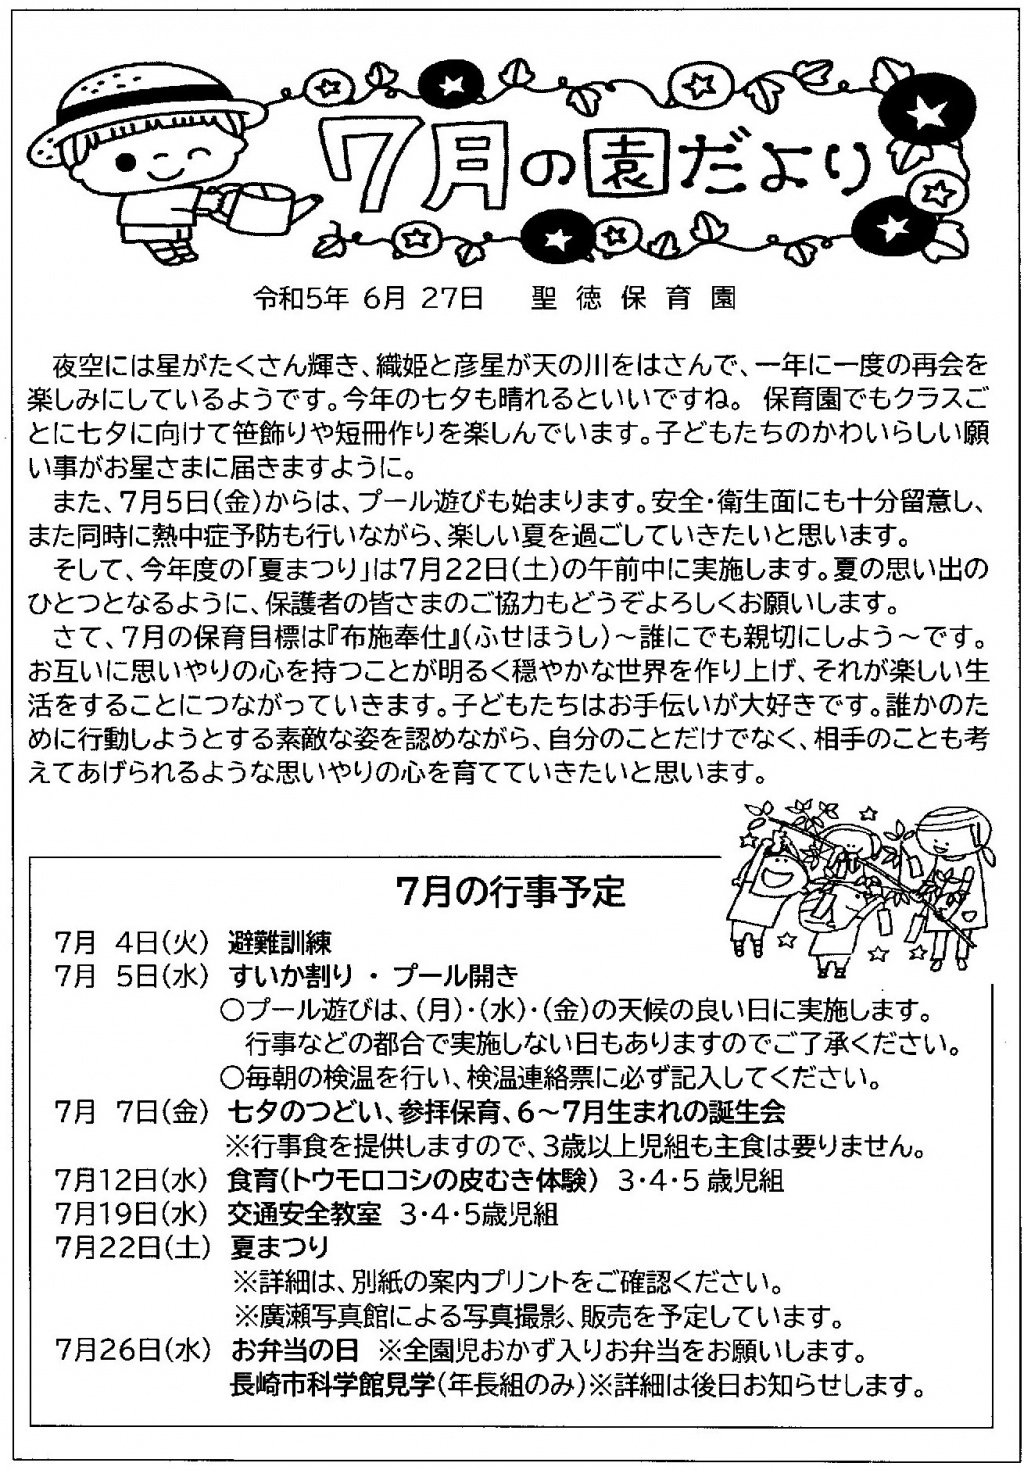 7月の園だより
令和5年 6月 27日 聖徳保育園
夜空には星がたくさん輝き、織姫と彦星が天の川をはさんで、一年に一度の再会を
楽しみにしているようです。今年の七夕も晴れるといいですね。 保育園でもクラスご
とに七夕に向けて笹飾りや短冊作りを楽しんでいます。子どもたちのかわいらしい願
い事がお星さまに届きますように。
また、7月5日(金)からは、プール遊びも始まります。安全・衛生面にも十分留意し、
また同時に熱中症予防も行いながら、楽しい夏を過ごしていきたいと思います。
そして、今年度の「夏まつり」は7月22日(土)の午前中に実施します。夏の思い出の
ひとつとなるように、保護者の皆さまのご協力もどうぞよろしくお願いします。
さて、7月の保育目標は『布施奉仕』(ふせほうし)~誰にでも親切にしよう~です。
お互いに思いやりの心を持つことが明るく穏やかな世界を作り上げ、それが楽しい生
活をすることにつながっていきます。子どもたちはお手伝いが大好きです。誰かのた
めに行動しようとする素敵な姿を認めながら、自分のことだけでなく、相手のことも考
えてあげられるような思いやりの心を育てていきたいと思います。
7月の行事予定
7月 4日(火) 避難訓練
7月 5日(水) すいか割り ・ プール開き
○プール遊びは、(月)・(水)・(金)の天候の良い日に実施します。
行事などの都合で実施しない日もありますのでご了承ください。
○毎朝の検温を行い、検温連絡票に必ず記入してください。
7月 7日(金) 七夕のつどい、参拝保育、6~7月生まれの誕生会
※行事食を提供しますので、3歳以上児組も主食は要りません。
7月12日(水) 食育(トウモロコシの皮むき体験) 3・4・5 歳児組
7月19日(水) 交通安全教室 3・4・5歳児組
7月22日(土) 夏まつり
※詳細は、別紙の案内プリントをご確認ください。
※廣瀬写真館による写真撮影、販売を予定しています。
7月26日(水) お弁当の日 ※全園児おかず入りお弁当をお願いします。
長崎市科学館見学(年長組のみ)※詳細は後日お知らせします。